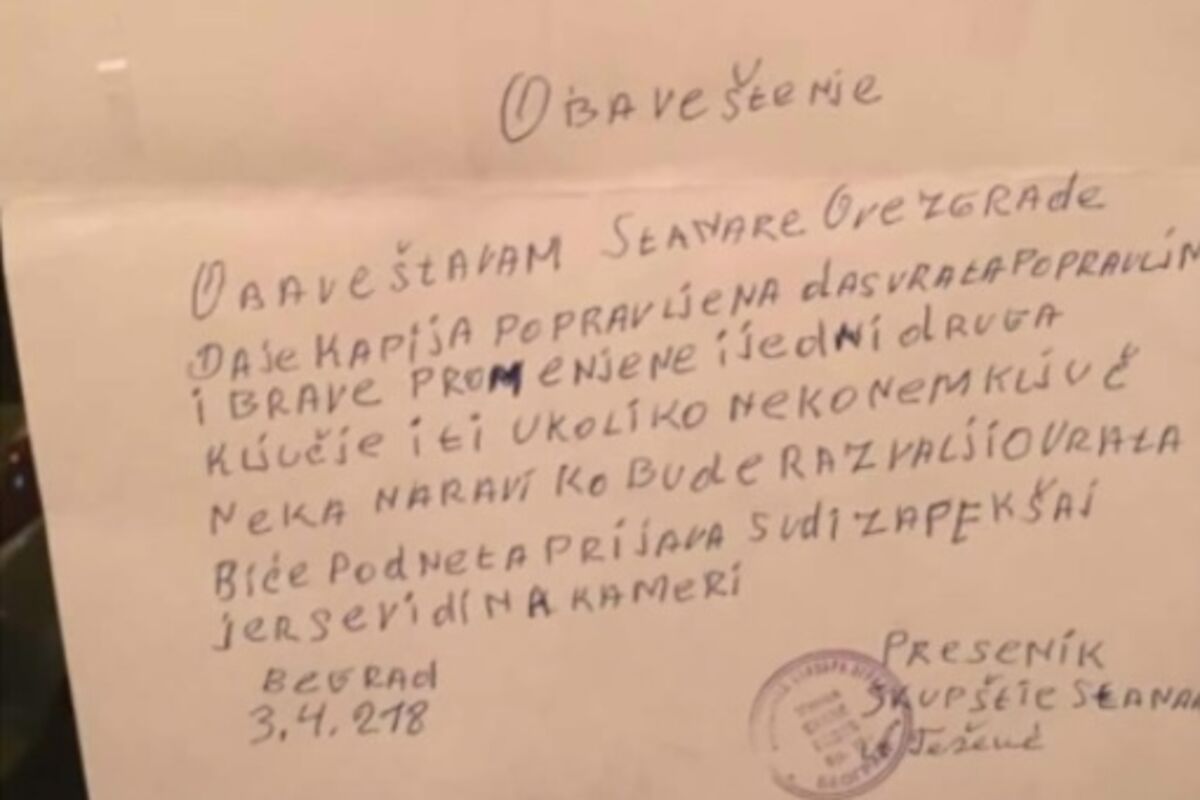 Obaveštenje
Obaveštavam stanare ove zgrade
Daje kapija popravljena dasvrata popravlin
i brave promenjene ijedni druga
ključje iti ukoliko neko nem ključ
neka naravi ko bude razvaljio vrata
Biće podneta prijava sudi zapekšaj
jer se vidi na kameri
Begrad
3.4.218
Presenik
skupštie stana